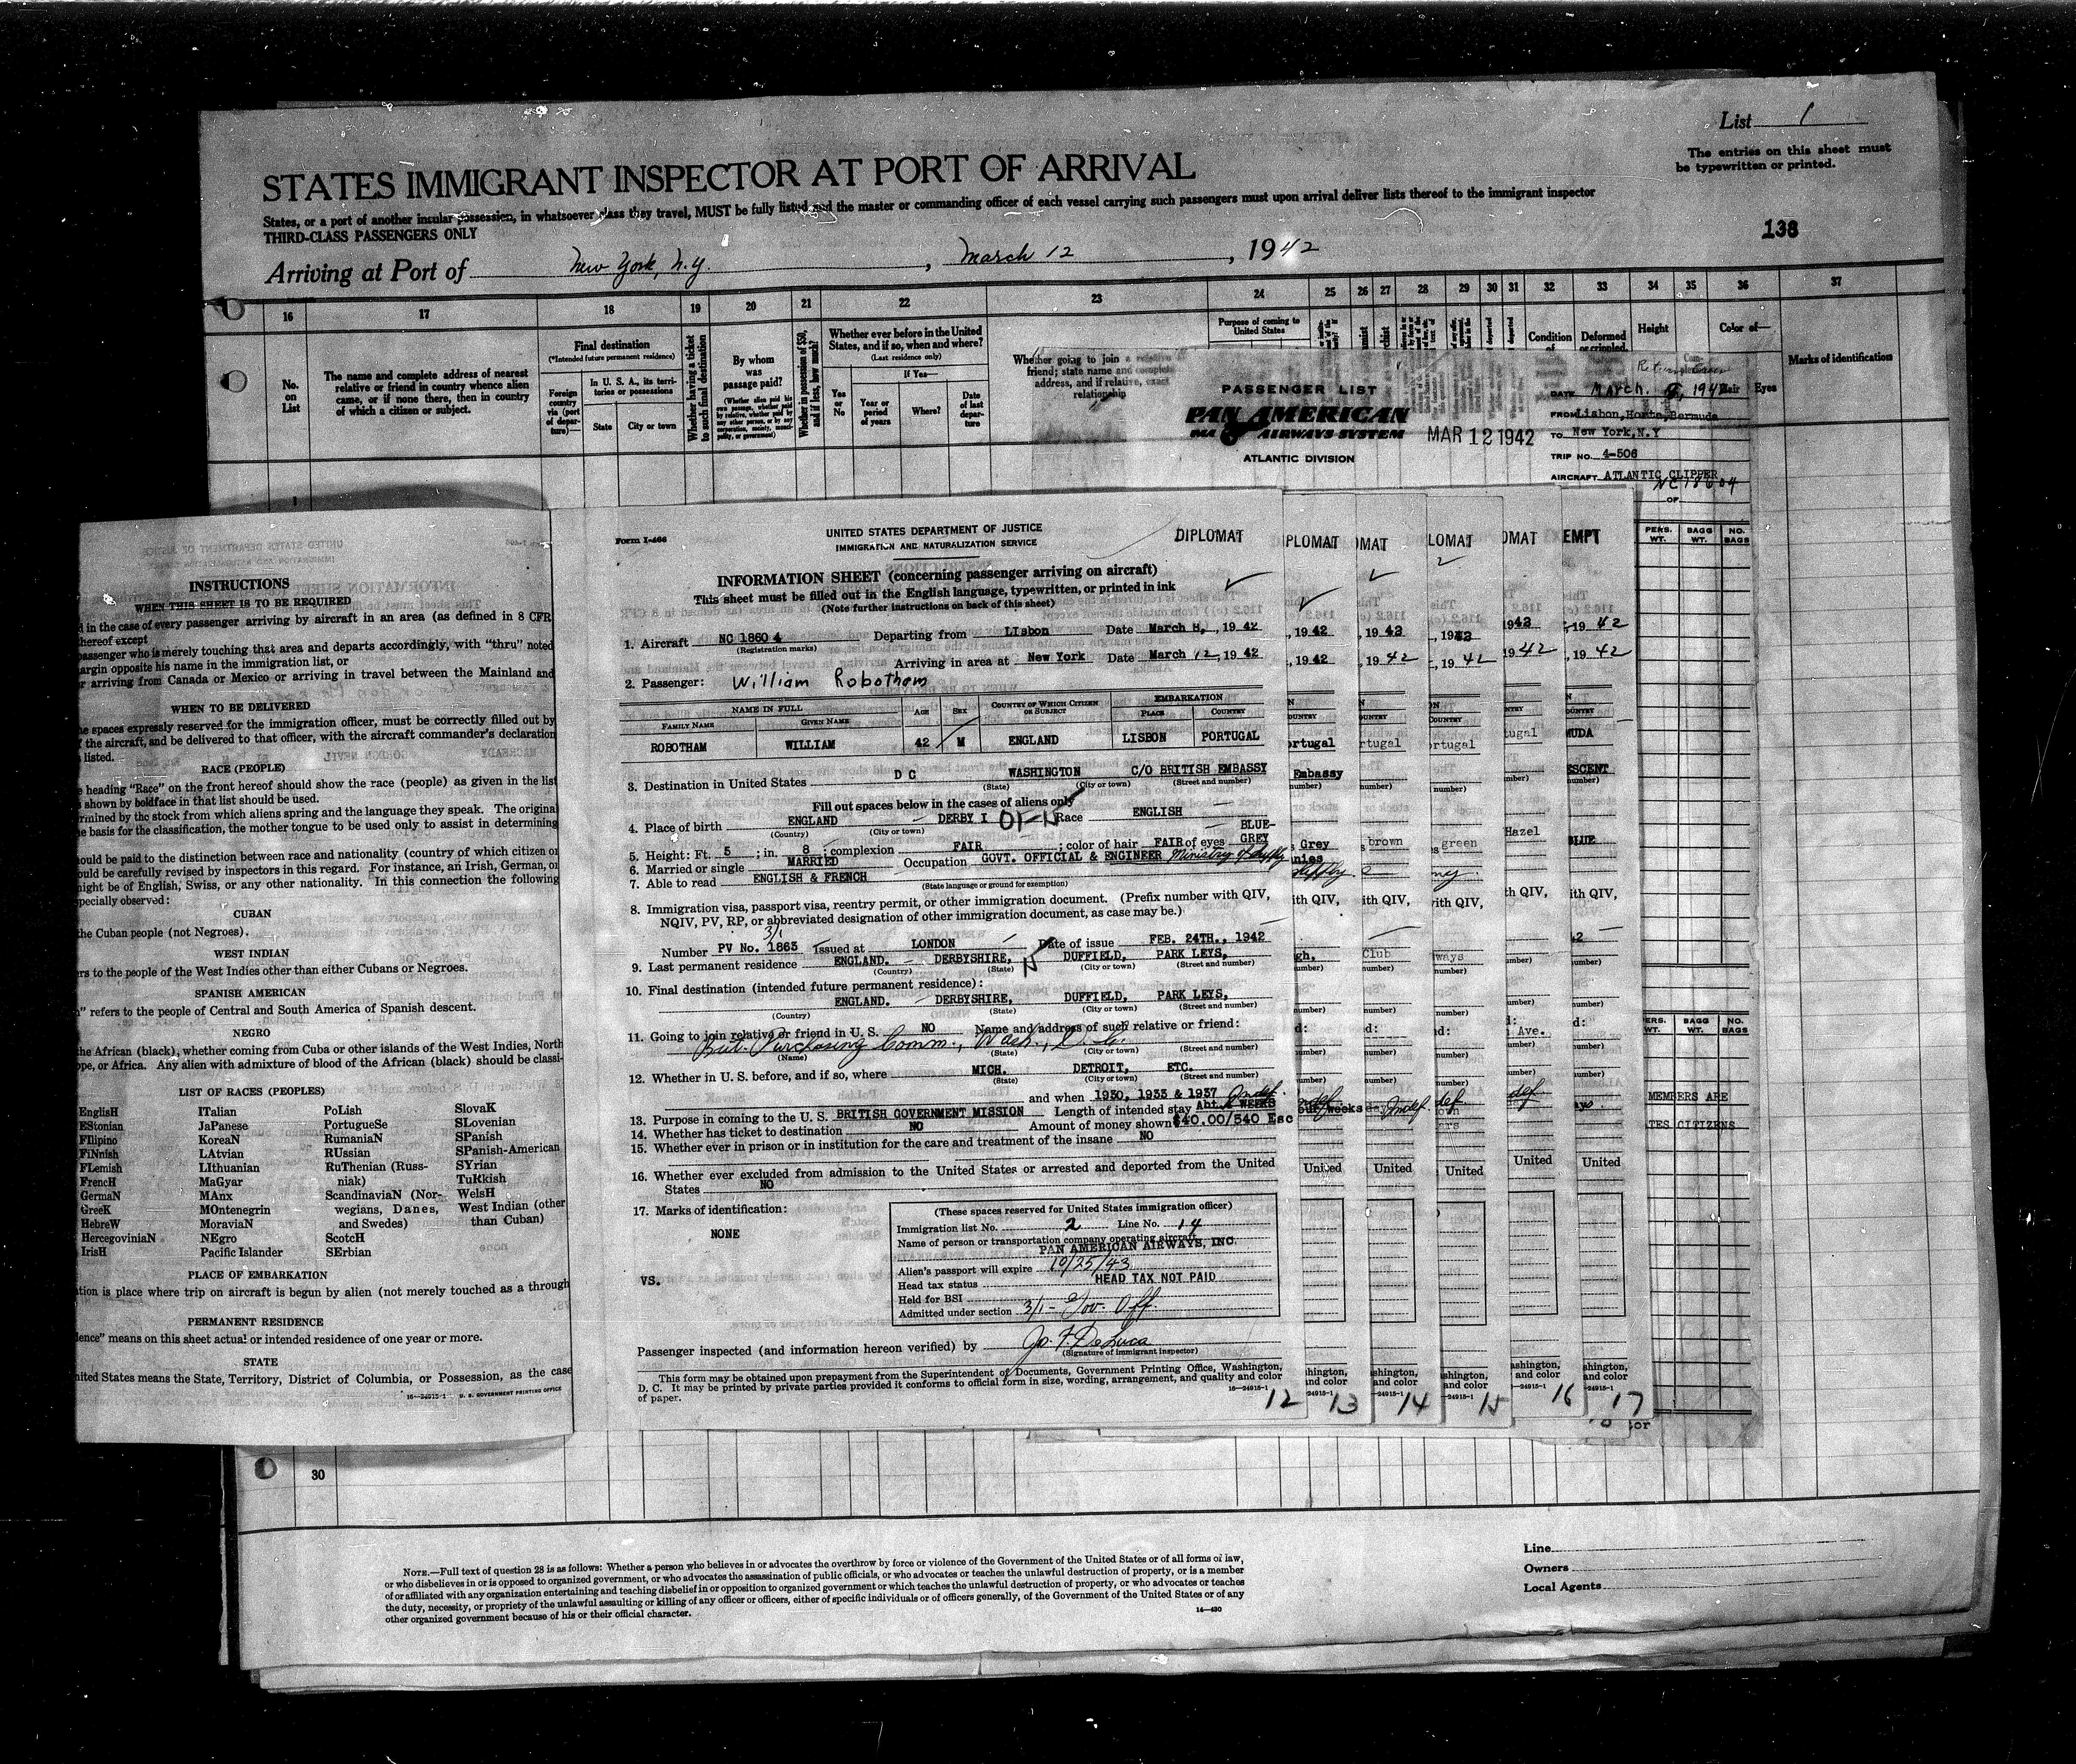 List 1
The entries on this sheet must
be typewritten or printed.
STATES IMMIGRANT INSPECTOR AT PORT OF ARRIVAL
States, or a port of another insular possession, in whatsoever class they travel, MUST be fully listed and the master or commanding officer of each vessel carrying such passengers must upon arrival deliver lists thereof to the immigrant inspector
THIRD-CLASS PASSENGERS ONLY
138
Arriving at Port of New York, N.Y. , March 12 , 1942
16 17 18 19 20 21 22 23 24 25 26 27 28 29 30 31 32 33 34 35 36 37
No. on List
The name and complete address of nearest
relative or friend in country whence alien
came, or if none there, then in country
of which a citizen or subject.
Final destination
(*Intended future permanent residence)
Foreign country via (port of departure)—
In U. S. A., its territories or possessions
State
City or town
Whether having a ticket to such final destination
By whom was passage paid?
(Whether alien paid his own passage, whether paid by relative, whether paid by any other person, or by any corporation, society, municipality, or government)
Whether in possession of $50, and if less, how much?
Whether ever before in the United
States, and if so, when and where?
(Last residence only)
If Yes—
Yes or No
Year or period of years
Where?
Date of last departure
Whether going to join a relative or
friend; state name and complete
address, and if relative, exact
relationship
Purpose of coming to
United States
Condition of
Deformed or crippled
Height
Color of—
Hair Eyes
Marks of identification
PASSENGER LIST
PAN AMERICAN
AIRWAYS SYSTEM
ATLANTIC DIVISION
MAR 12 1942
DATE March.
FROM Lisbon, Horta, Bermuda
TO New York, N.Y
TRIP NO. 4-506
AIRCRAFT ATLANTIC CLIPPER
NC 18604
OF
PERS. WT. BAGG WT. NO. BAGS
INSTRUCTIONS
WHEN THIS SHEET IS TO BE REQUIRED
d in the case of every passenger arriving by aircraft in an area (as defined in 8 CFR
hereof except
passenger who is merely touching that area and departs accordingly, with "thru" noted
argin opposite his name in the immigration list, or
r arriving from Canada or Mexico or arriving in travel between the Mainland and
WHEN TO BE DELIVERED
he spaces expressly reserved for the immigration officer, must be correctly filled out by
f the aircraft, and be delivered to that officer, with the aircraft commander's declaration
s listed.
RACE (PEOPLE)
e heading "Race" on the front hereof should show the race (people) as given in the list
s shown by boldface in that list should be used.
rmined by the stock from which aliens spring and the language they speak. The original
he basis for the classification, the mother tongue to be used only to assist in determining
ould be paid to the distinction between race and nationality (country of which citizen or
ould be carefully revised by inspectors in this regard. For instance, an Irish, German, or
ight be of English, Swiss, or any other nationality. In this connection the following
specially observed:
CUBAN
the Cuban people (not Negroes).
WEST INDIAN
ers to the people of the West Indies other than either Cubans or Negroes.
SPANISH AMERICAN
n" refers to the people of Central and South America of Spanish descent.
NEGRO
the African (black), whether coming from Cuba or other islands of the West Indies, North
ope, or Africa. Any alien with admixture of blood of the African (black) should be classi-
LIST OF RACES (PEOPLES)
EnglisH ITalian PoLish SlovaK
EStonian JaPanese PortugueSe SLovenian
FIlipino KoreaN RumaniaN SPanish
FiNnish LAtvian RUssian SPanish-American
FLemish LIthuanian RuThenian (Russ- SYrian
FrencH MaGyar niak) TuRkish
GermaN MAnx ScandinaviaN (Nor- WelsH
GreeK MOntenegrin wegians, Danes, West Indian (other
HebreW MoraviaN and Swedes) than Cuban)
HercegoviniaN NEgro ScotcH
IrisH Pacific Islander SErbian
PLACE OF EMBARKATION
ation is place where trip on aircraft is begun by alien (not merely touched as a through
PERMANENT RESIDENCE
dence" means on this sheet actual or intended residence of one year or more.
STATE
nited States means the State, Territory, District of Columbia, or Possession, as the case
16—24915-1 U. S. GOVERNMENT PRINTING OFFICE
Form I-466
UNITED STATES DEPARTMENT OF JUSTICE
IMMIGRATION AND NATURALIZATION SERVICE
DIPLOMAT
INFORMATION SHEET (concerning passenger arriving on aircraft)
This sheet must be filled out in the English language, typewritten, or printed in ink
(Note further instructions on back of this sheet)
1. Aircraft NC 18604 Departing from Lisbon Date March 8, 1942
(Registration marks)
Arriving in area at New York Date March 12, 1942
2. Passenger: William Robotham
NAME IN FULL AGE SEX COUNTRY OF WHICH CITIZEN OR SUBJECT EMBARKATION
FAMILY NAME GIVEN NAME PLACE COUNTRY
ROBOTHAM WILLIAM 42 M ENGLAND LISBON PORTUGAL
3. Destination in United States D C WASHINGTON C/O BRITISH EMBASSY
(State) (City or town) (Street and number)
Fill out spaces below in the cases of aliens only
4. Place of birth ENGLAND DERBY Race ENGLISH
(Country) (City or town)
5. Height: Ft. 5 ; in. 8 ; complexion FAIR ; color of hair FAIR of eyes BLUE-GREY
6. Married or single MARRIED Occupation GOVT. OFFICIAL & ENGINEER Ministry of Supply
7. Able to read ENGLISH & FRENCH
(State language or ground for exemption)
8. Immigration visa, passport visa, reentry permit, or other immigration document. (Prefix number with QIV,
NQIV, PV, RP, or abbreviated designation of other immigration document, as case may be.)
3/1
Number PV No. 1863 Issued at LONDON Date of issue FEB. 24TH., 1942
9. Last permanent residence ENGLAND. DERBYSHIRE, DUFFIELD, PARK LEYS,
(Country) (State) (City or town) (Street and number)
10. Final destination (intended future permanent residence):
ENGLAND. DERBYSHIRE, DUFFIELD, PARK LEYS,
(Country) (State) (City or town) (Street and number)
11. Going to join relative or friend in U. S. NO Name and address of such relative or friend:
Brit. Purchasing Comm., Wash., D.C.
(Name) (State) (City or town) (Street and number)
12. Whether in U. S. before, and if so, where MICH. DETROIT, ETC.
(State) (City or town) (Street and number)
and when 1930, 1933 & 1937 Indef.
13. Purpose in coming to the U. S. BRITISH GOVERNMENT MISSION Length of intended stay Abt. WEEKS
14. Whether has ticket to destination NO Amount of money shown $40.00/540 Esc
15. Whether ever in prison or in institution for the care and treatment of the insane NO
16. Whether ever excluded from admission to the United States or arrested and deported from the United
States NO
17. Marks of identification:
NONE
VS.
(These spaces reserved for United States immigration officer)
Immigration list No. 2 Line No. 14
Name of person or transportation company operating aircraft
PAN AMERICAN AIRWAYS, INC.
Alien's passport will expire 10/25/43
Head tax status HEAD TAX NOT PAID
Held for BSI
Admitted under section 3/1 - Gov. Off.
Passenger inspected (and information hereon verified) by Jo. F. DeLuca
(Signature of immigrant inspector)
This form may be obtained upon prepayment from the Superintendent of Documents, Government Printing Office, Washington,
D. C. It may be printed by private parties provided it conforms to official form in size, wording, arrangement, and quality and color
of paper.
16—24915-1
12 13 14 15 16 17
PLOMAT OMAT LOMAT OMAT EMPT
MEMBERS ARE
TES CITIZENS
30
NOTE.—Full text of question 28 is as follows: Whether a person who believes in or advocates the overthrow by force or violence of the Government of the United States or of all forms of law,
or who disbelieves in or is opposed to organized government, or who advocates the assassination of public officials, or who advocates or teaches the unlawful destruction of property, or is a member
of or affiliated with any organization entertaining and teaching disbelief in or opposition to organized government or which teaches the unlawful destruction of property, or who advocates or teaches
the duty, necessity, or propriety of the unlawful assaulting or killing of any officer or officers, either of specific individuals or of officers generally, of the Government of the United States or of any
other organized government because of his or their official character.
14—430
Line
Owners
Local Agents